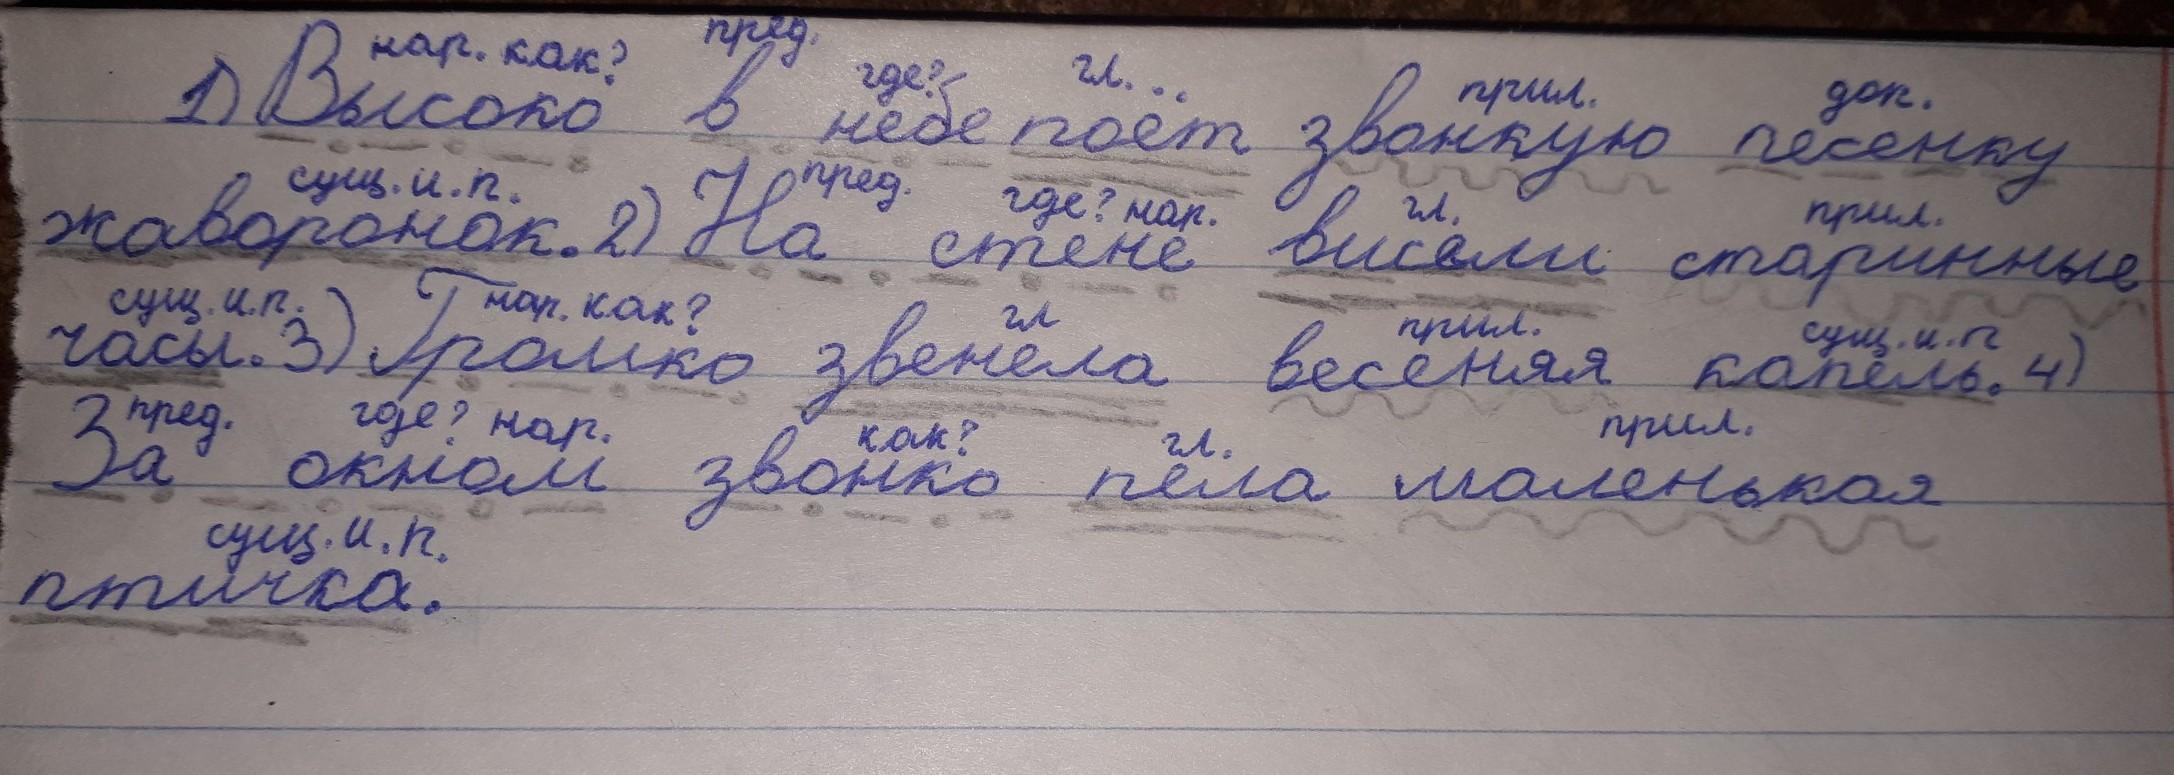 нар. как? пред. где? гл... прил. доп.
1) Высоко в небе поет звонкую песенку
сущ. и. п. пред. где? нар. гл. прил.
жаворонок. 2) На стене висели старинные
сущ. и. п. нар. как? гл прил. сущ. и. п
часы. 3) Громко звенела весеняя капель. 4)
пред. где? нар. как? гл. прил.
За окном звонко пела маленькая
сущ. и. п.
птичка.